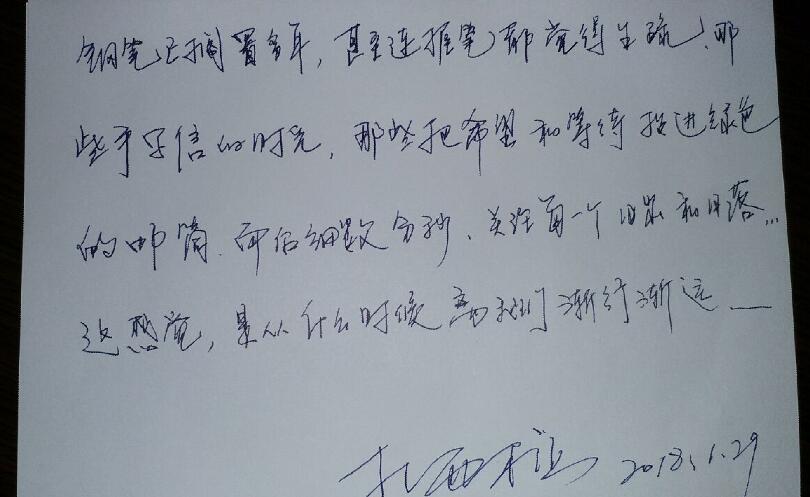 钢笔已搁置多年，甚至连握笔都觉得生疏、那
些手写信的时光，那些把希望和等待投进绿色
的邮筒、而后细数分秒、关注每一个日出和日落…
这感觉，是从什么时候离我们渐行渐远——
2018.1.29